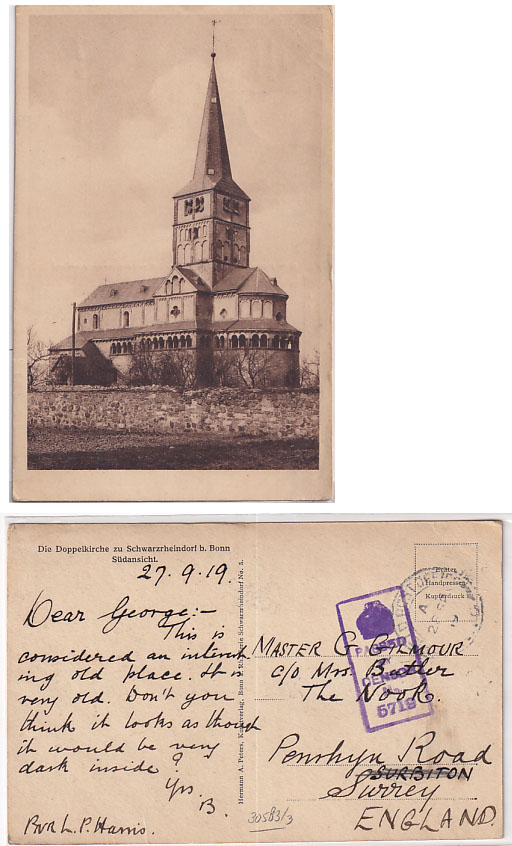 Die Doppelkirche zu Schwarzrheindorf b. Bonn
Südansicht.
27.9.19.
Dear George:-
This is
considered an interest
ing old place. It is
very old. Don't you
think it looks as though
it would be very
dark inside?
Yrs.
B.
L. P. Harris.
Hermann A. Peters, Kunstverlag, Bonn Schwarzrheindorf No. 5.
30583/3
Echter
Handpressen
Kupferdruck
PASSED
CENSOR
No.
5719
MASTER G. GILMOUR
c/o Mrs. Butler
The Nook.
Penrhyn Road
SURBITON
Surrey
ENGLAND.